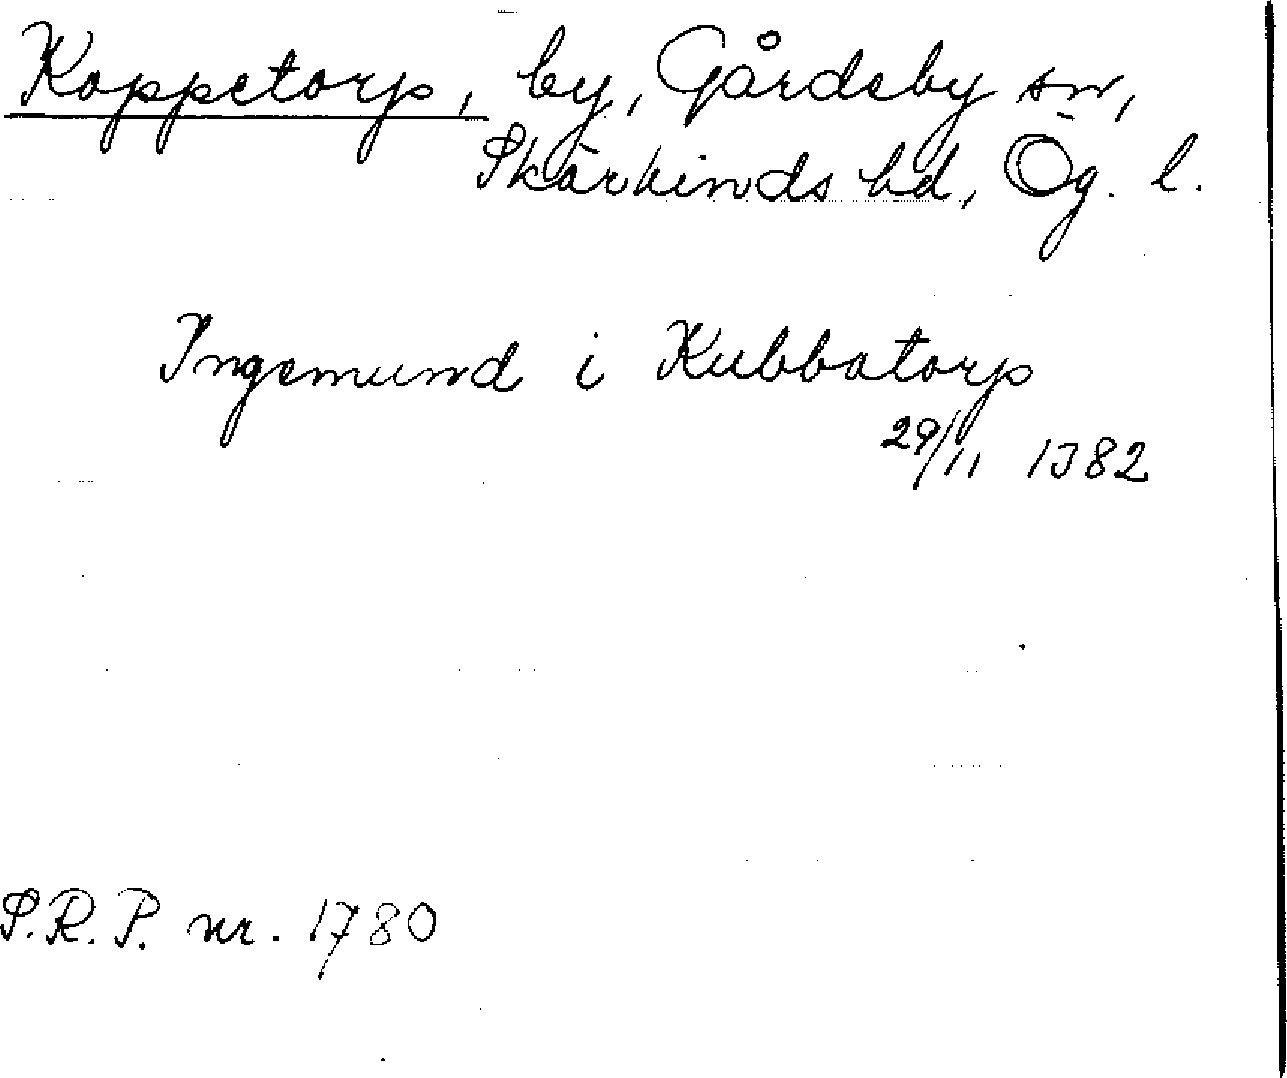 Koppetorp, by, Gårdeby sn,
Skärkinds hd, Ög. l.
Ingemund i Kubbatorp
29/11 1382
S.R.P. nr. 1780